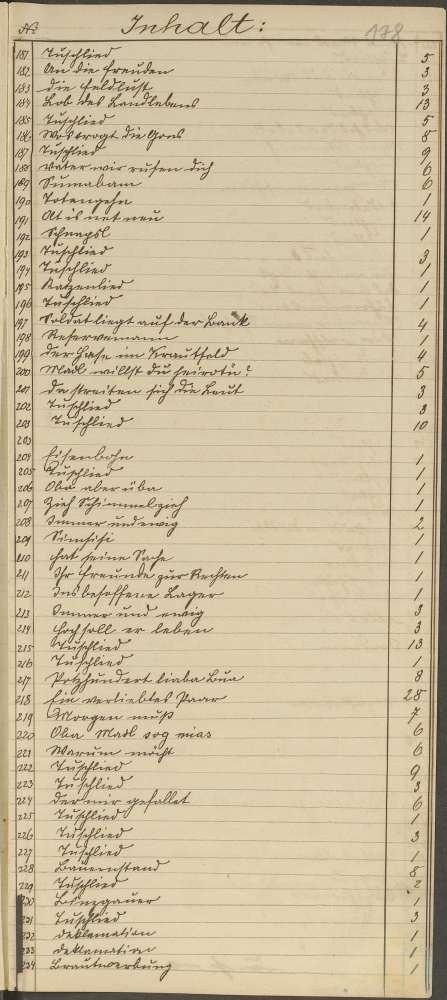 № Inhalt: 178
181 Tuschlied 5
182 An die Freuden 3
183 Die Feldlust 3
184 Lob des Landlebens 13
185 Tuschlied 5
186 Wos trogt die Gons 8
187 Tuschlied 9
188 Vater wir rufen dich 6
189 Sumabam 6
190 Totengehn 1
191 At is net neu 14
192 Schnapsl 1
193 Tuschlied 3
194 Tuschlied 1
195 Katzenlied 1
196 Tuschlied 1
197 Soldat liegt auf der Bank 4
198 Reservemann 1
199 Der Hase im Krautfeld 4
200 Madl willst du heirotn? 5
201 Da streiten sich die Leut 3
202 Tuschlied 3
203 Tuschlied 10
203
204 Eisenbohn 1
205 Tuschlied 1
206 Oba aber üba 1
207 Zieh Schimmel zieh 1
208 Immer und ewig 2
209 Simsisi 1
210 Hat seine Sache 1
211 Ihr Freunde zur Rechten 1
212 Ins besoffene Lager 1
213 Immer und ewig 3
214 Hoch soll er leben 3
215 Tuschlied 13
216 Tuschlied 1
217 Potzhundert liaba Bua 8
218 Ein verliebtes Paar 28
219 Morgen muß 7
220 Oba Madl sog mias 6
221 Warum möcht 6
222 Tuschlied 9
223 Tuschlied 3
224 Der mir gefallet 6
225 Tuschlied 1
226 Tuschlied 3
227 Tuschlied 1
228 Bauernstand 8
229 Tuschlied 2
230 Binzgauer 1
231 Tuschlied 3
232 Deklamation 1
233 Deklamation 1
234 Brautwerbung 1